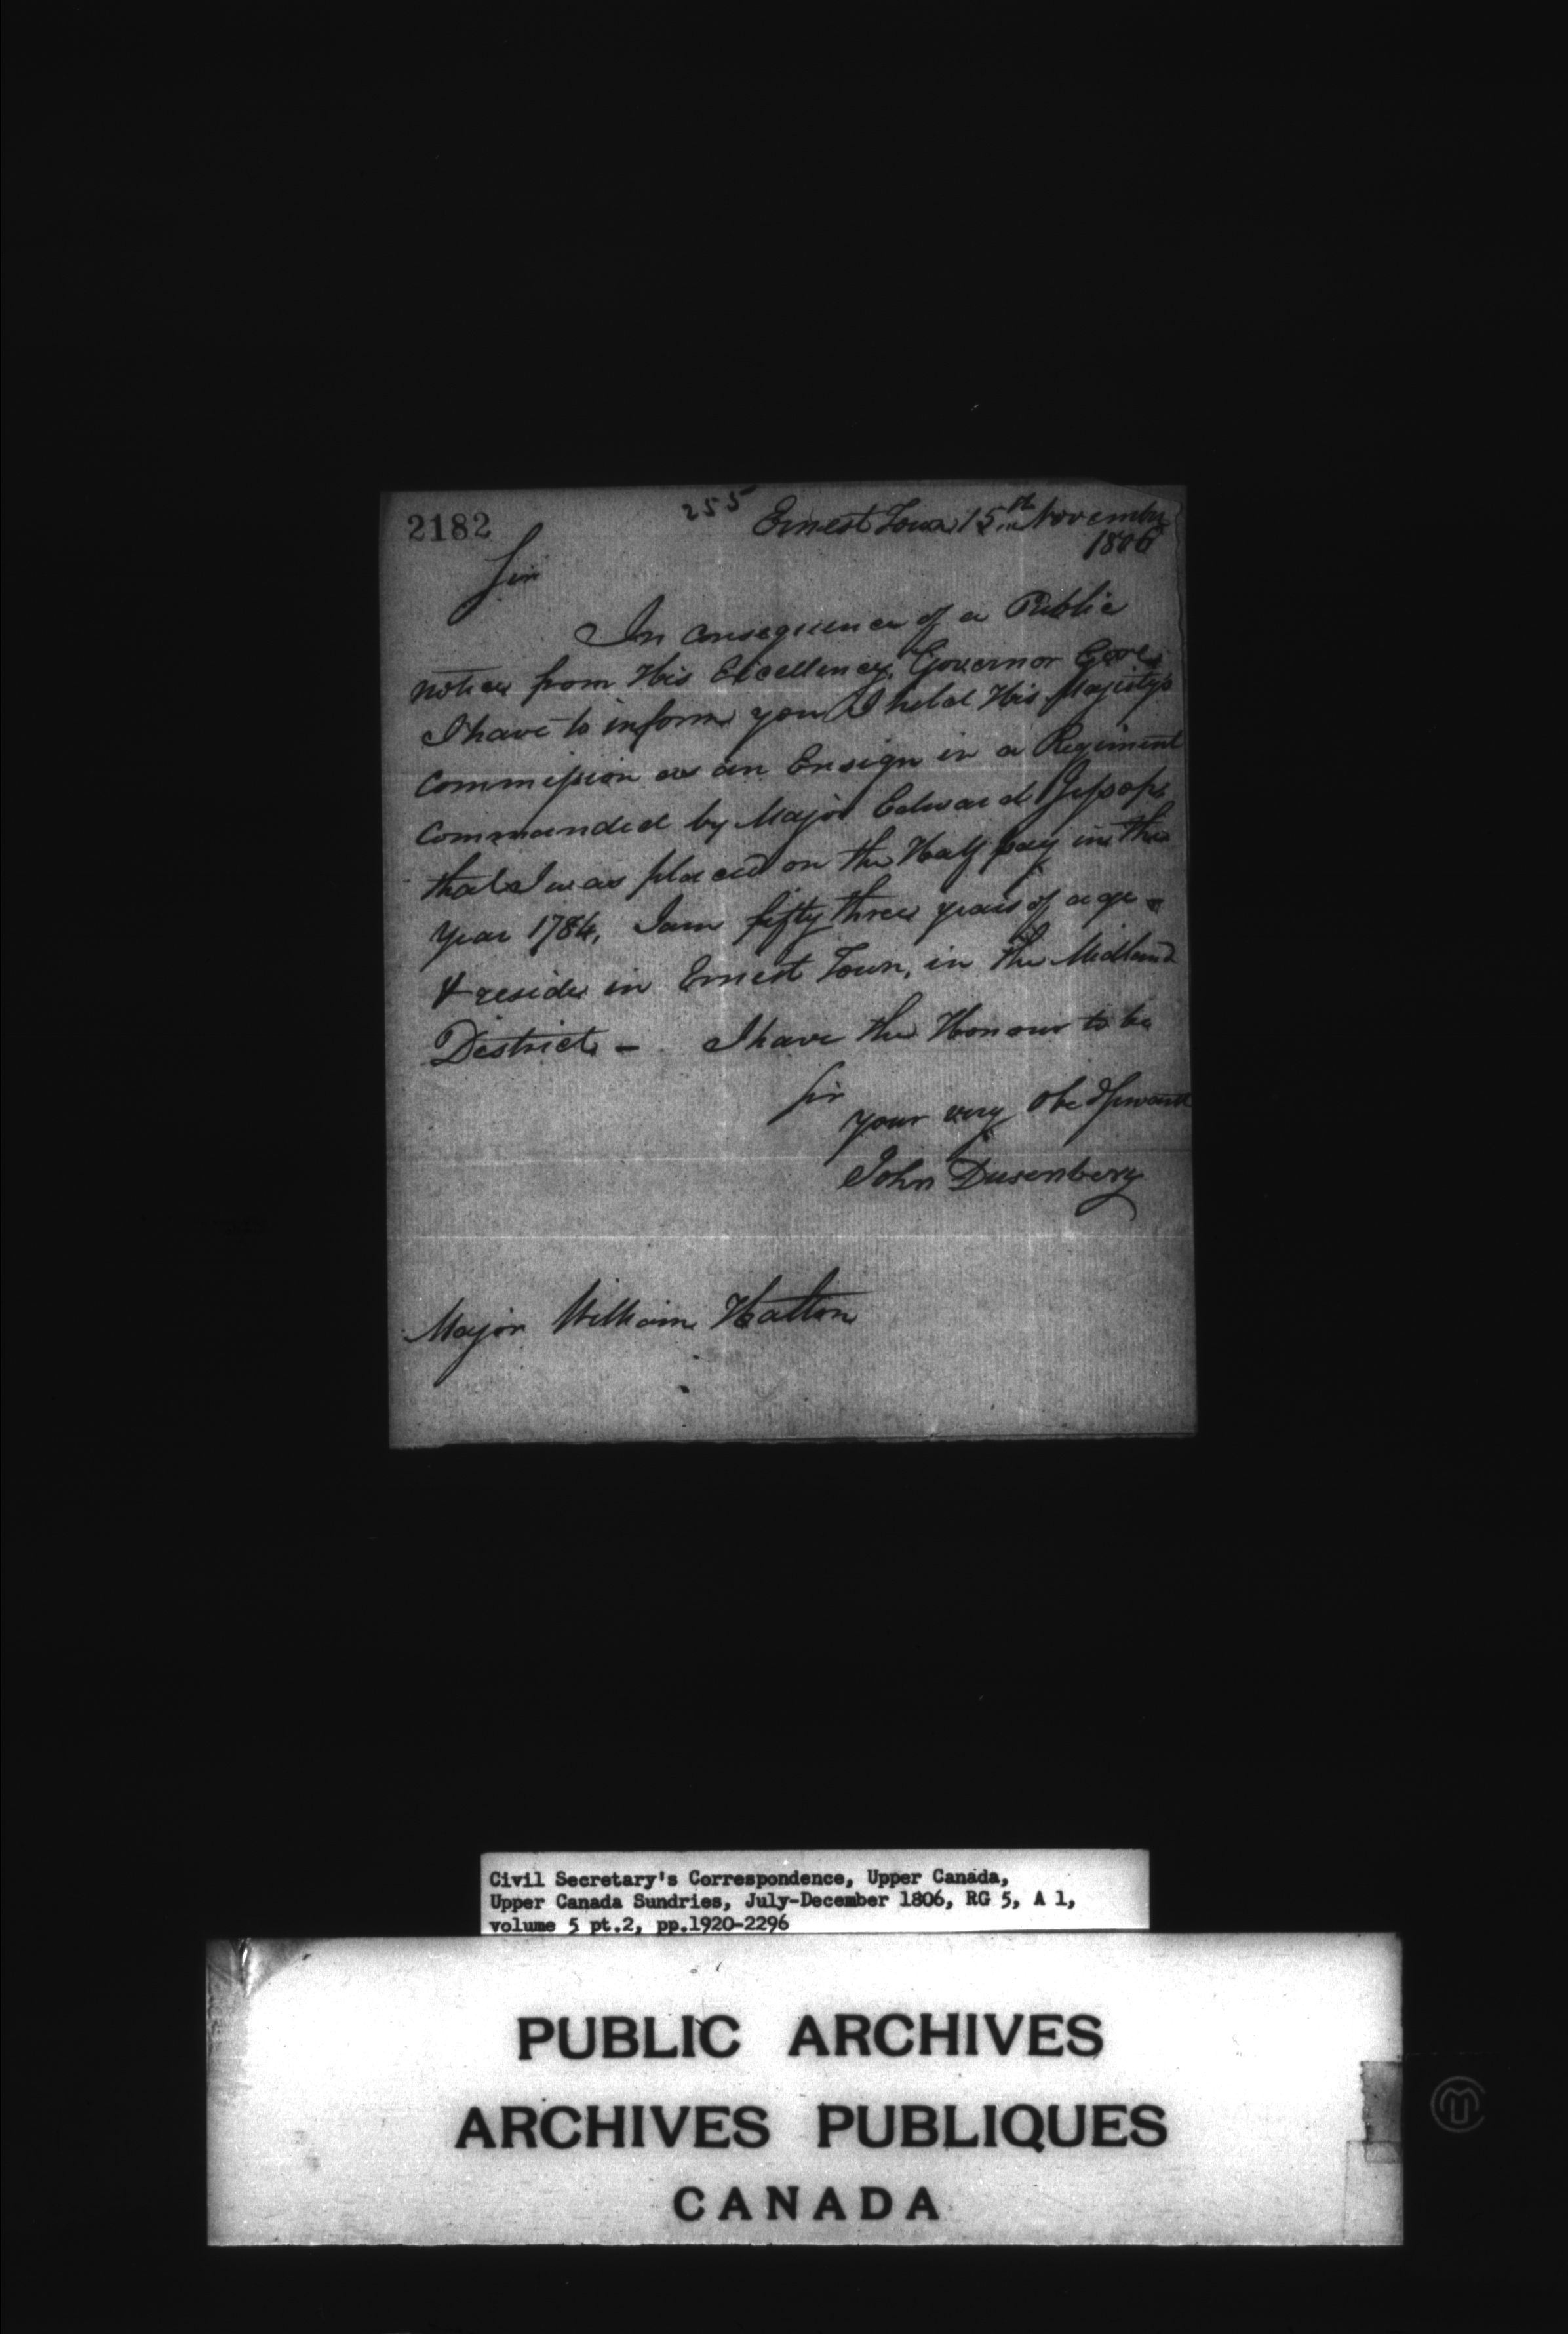 2182
255
Ernest Town 15th November
1806
Sir
In consequence of a Public
notice from His Excellency Governor Gore
I have to inform you I held His Majestys
Commission as an Ensign in a Regiment
Commanded by Major Edward Jessop,
that I was placed on the Half pay in the
Year 1784, I am fifty three years of age
& reside in Ernest Town, in the Midland
District - I have the Honour to be
Sir
your very Obed Servant
John Dusenbery
Major William Halton
Civil Secretary's Correspondence, Upper Canada,
Upper Canada Sundries, July-December 1806, RG 5, A 1,
volume 5 pt.2, pp.1920-2296
PUBLIC ARCHIVES
ARCHIVES PUBLIQUES
CANADA